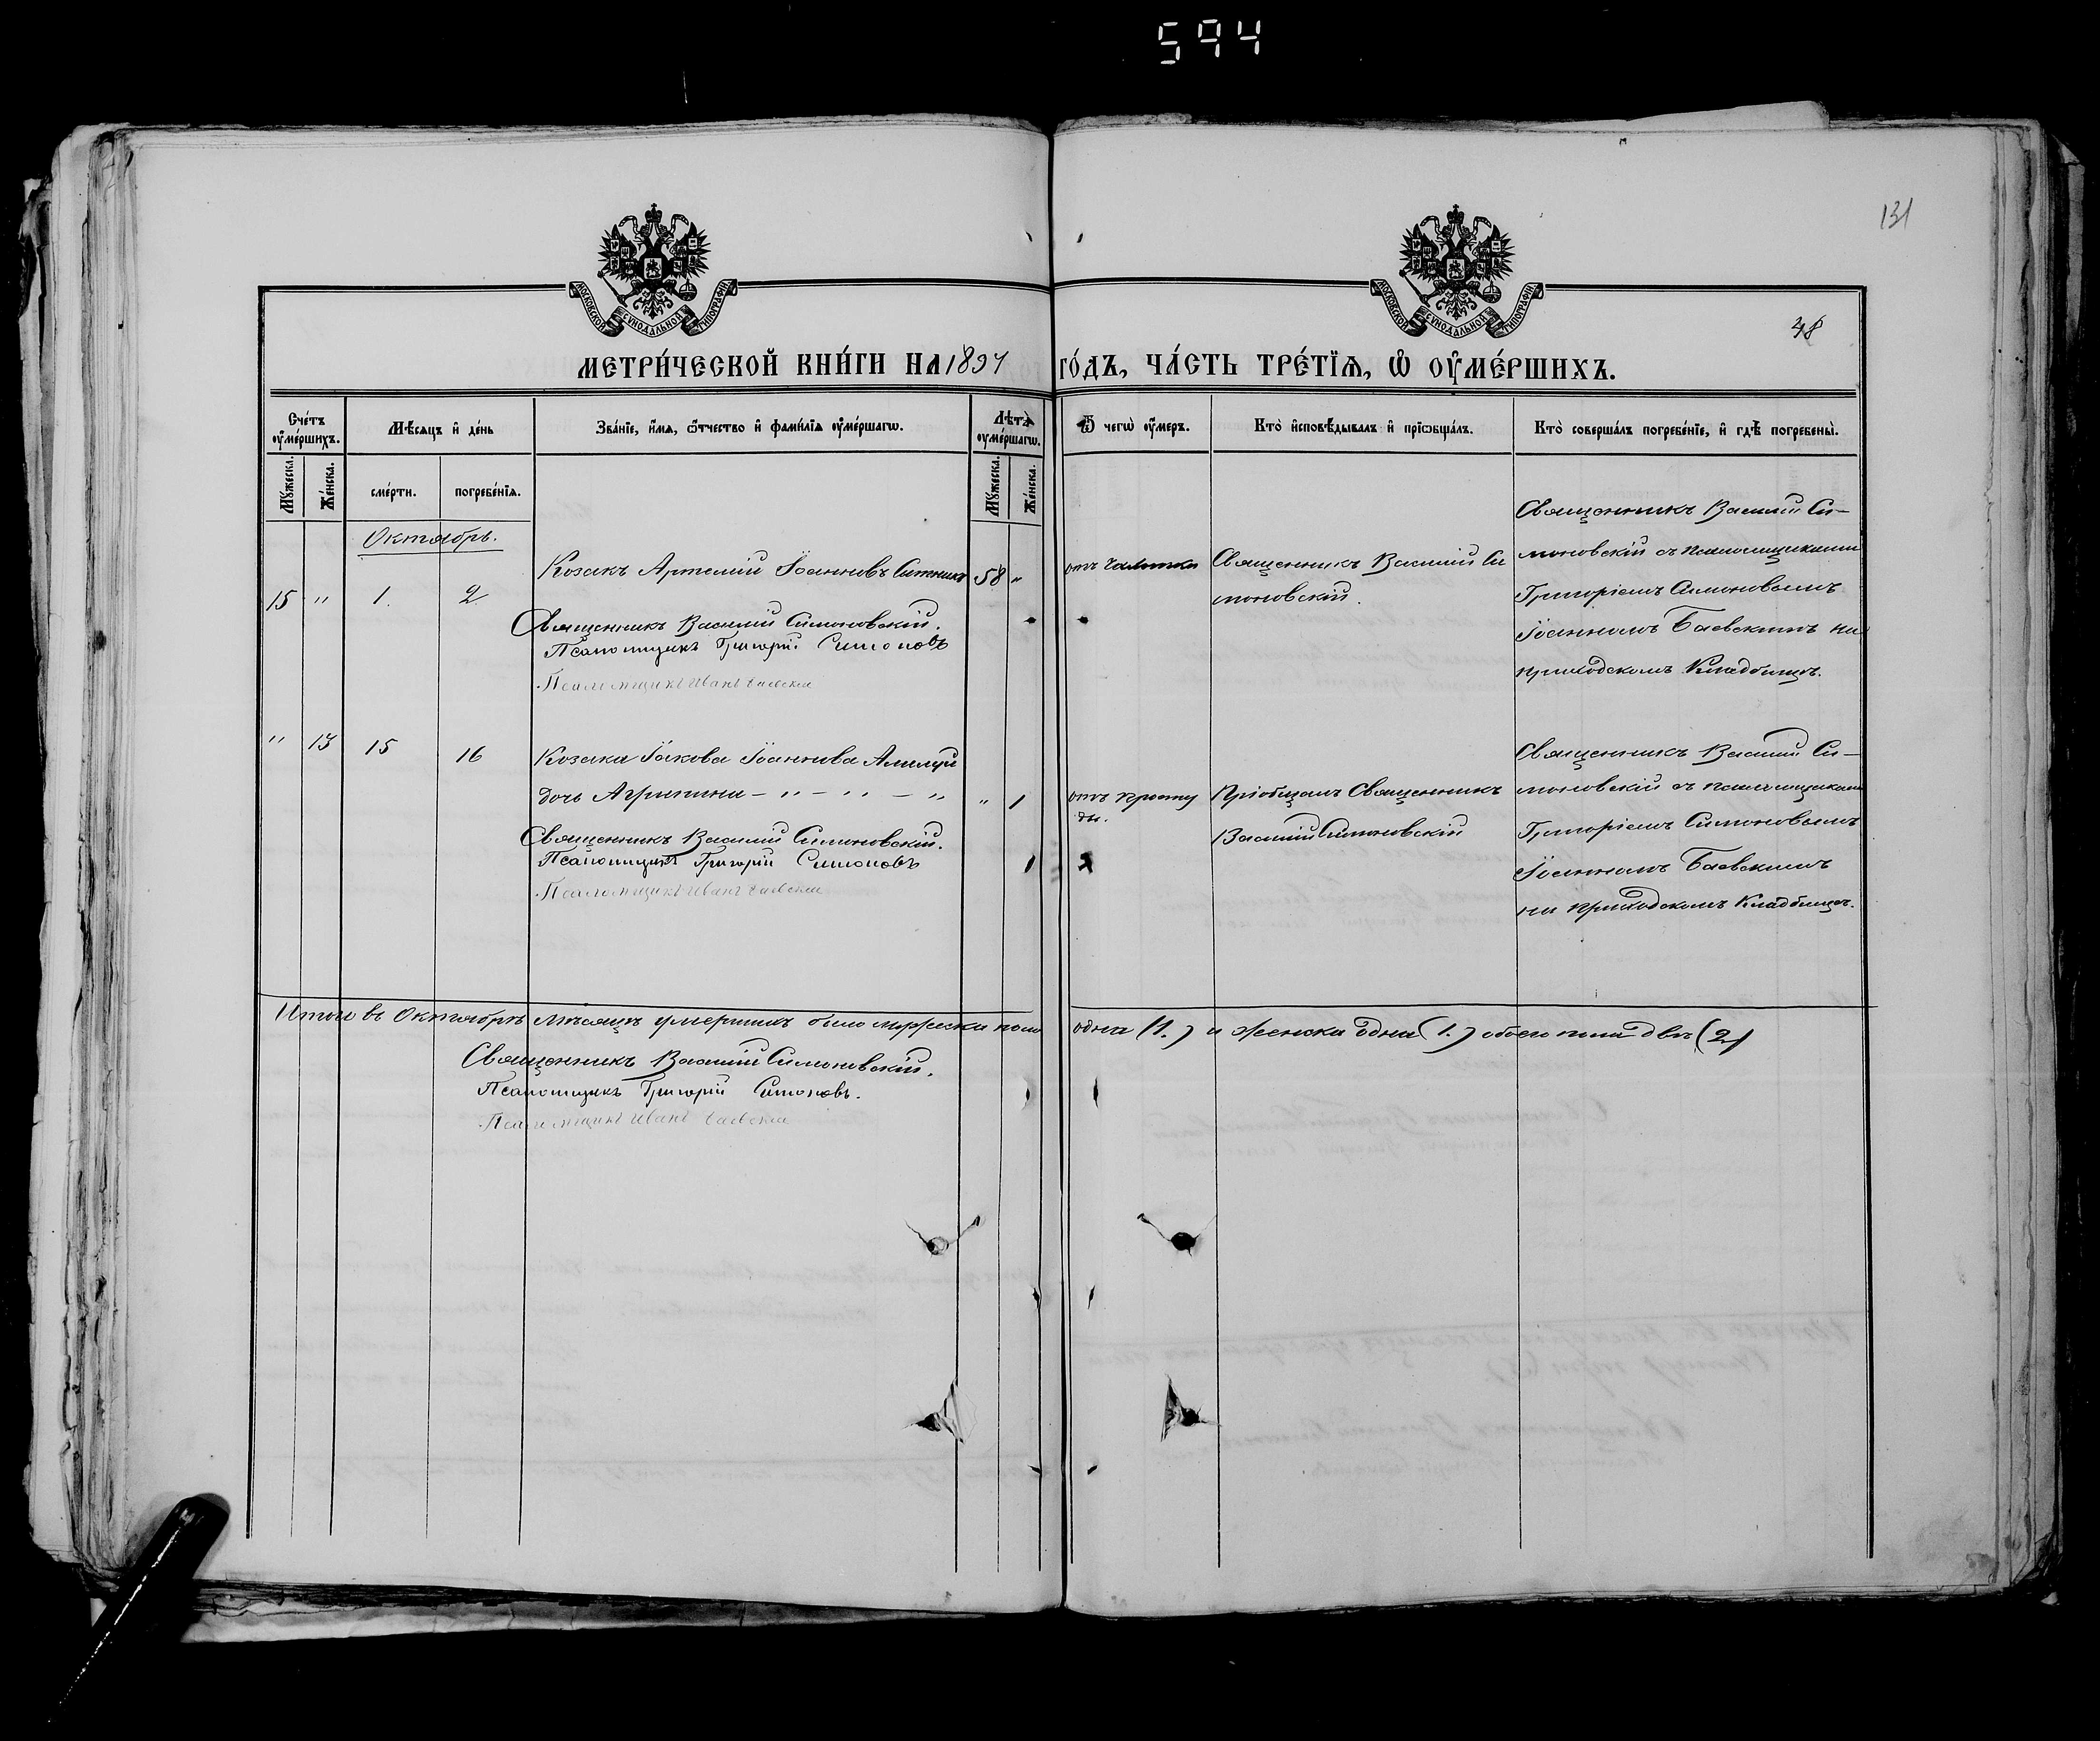 594
131
48
МОСКОВСКОЙ СѴНОДАЛЬНОЙ ТИПОГРАФІИ
МОСКОВСКОЙ СѴНОДАЛЬНОЙ ТИПОГРАФІИ
МЕТРИ́ЧЕСКОЙ КНИ́ГИ НА 1897 ГО́ДЪ, ЧА́СТЬ ТРЕ́ТЇѦ, Ѡ҆ ОУ҆МЕ́РШИХЪ.
Сче́тъ оу҆ме́ршихъ.
Мѣ́сяцъ и҆ де́нь
Зва́нїе, и҆́мя, ѻ҆́тчество и҆ фами́лїя оу҆ме́ршагѡ.
Лѣ́та оу҆ме́ршагѡ.
Ѿ чегѡ̀ оу҆́меръ.
Кто̀ и҆сповѣ́дывалъ и҆ прїѻбща́лъ.
Кто̀ соверша́лъ погребе́нїе, и҆ гдѣ̀ погребены̀.
Мꙋ́жеска.
Же́нска.
сме́рти.
погребе́нїя.
Мꙋ́жеска.
Же́нска.
Октябрь.
15 " 1. 2.
Козакъ Артемій Іоанновъ Ситникъ 58 "
Священникъ Василій Симоновскій.
Псаломщикъ Григорій Симоновъ
Псаломщикъ Иванъ Баевскій
отъ
Священникъ Василій Си
моновскій.
Священникъ Василій Си-
моновскій съ псаломщиками
Григоріемъ Симоновымъ
Іоанномъ Баевскимъ на
приходскомъ кладбищѣ.
" 13 15 16
Козака Іакова Іоаннова
дочь Агрипина - " - " - " " 1
Священникъ Василій Симоновскій.
Псаломщикъ Григорій Симоновъ
Псаломщикъ Иванъ Баевскій
отъ просту
ды.
Пріобщалъ Священникъ
Василій Симоновскій
Священникъ Василій Си-
моновскій съ псаломщиками
Григоріемъ Симоновымъ
Іоанномъ Баевскимъ
на приходскомъ кладбищѣ.
Итого въ Октябрѣ мѣсяцѣ умершихъ было мужеска пола одна (1.) и женска одна (1.) обоего пола двѣ (2)
Священникъ Василій Симоновскій.
Псаломщикъ Григорій Симоновъ.
Псаломщикъ Иванъ Баевскій